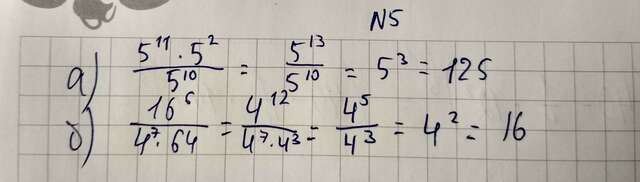 N5
а) 5^11 · 5^2 / 5^10 = 5^13 / 5^10 = 5^3 = 125
б) 16^6 / 4^7 · 64 = 4^12 / 4^7 · 4^3 = 4^5 / 4^3 = 4^2 = 16